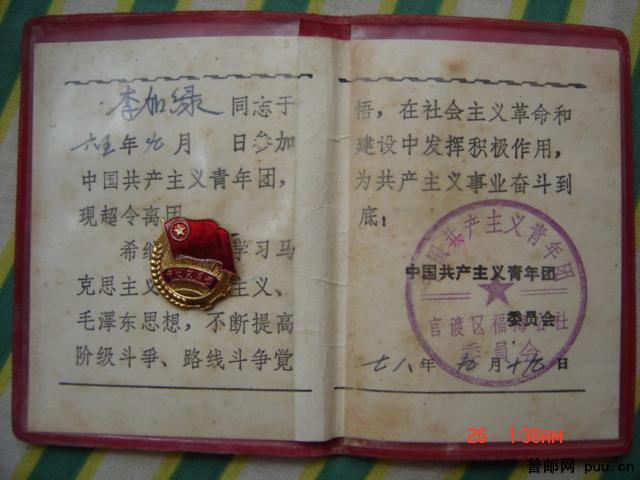 李加绿 同志于
六五年九月 日参加
中国共产主义青年团，
現超令离团。
希继 学习马
克思主义 主义、
毛澤东思想，不断提高
阶级斗爭、路线斗争觉
悟，在社会主义革命和
建设中发挥积极作用，
为共产主义事业奋斗到
底！
中国共产主义青年团
委员会
七八年 月十九日
中国共产主义青年团
官渡区福海公社
委员会
26 1:35AM
普邮网 puu.cn